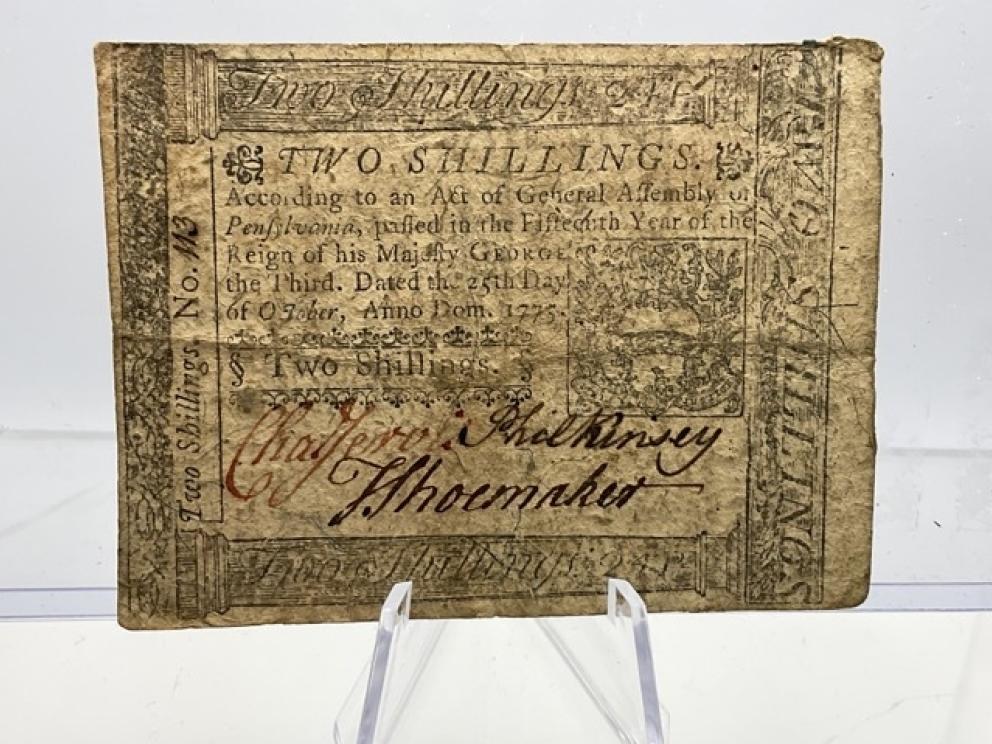 Two Shillings
TWO SHILLINGS.
According to an Act of General Assembly of
Pensylvania, passed in the Fifteenth Year of the
Reign of his Majesty GEORGE
the Third. Dated the 25th Day
of October, Anno Dom. 1775.
§ Two Shillings. §
Phil Kinsey
Shoemaker
Two Shillings
Two Shillings. No. 113
TWO SHILLINGS